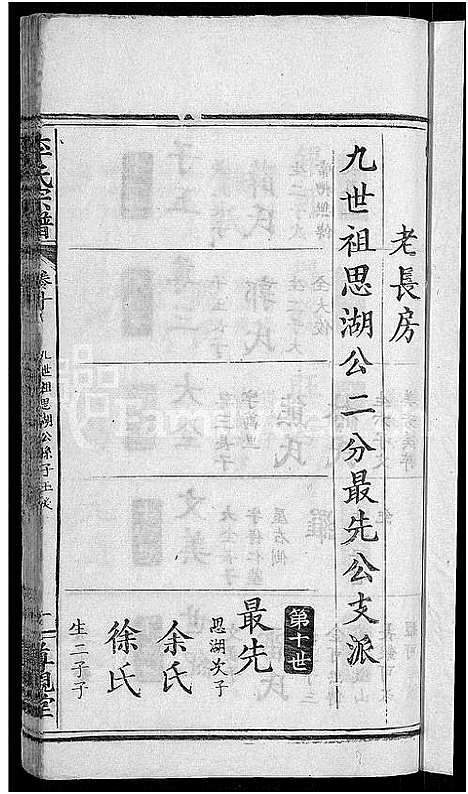 老長房
九世祖思湖公二分最先公支派
第十世
最先
思湖次子
余氏
徐氏
生二子子
李氏宗譜
卷十
九世祖思湖公孫子